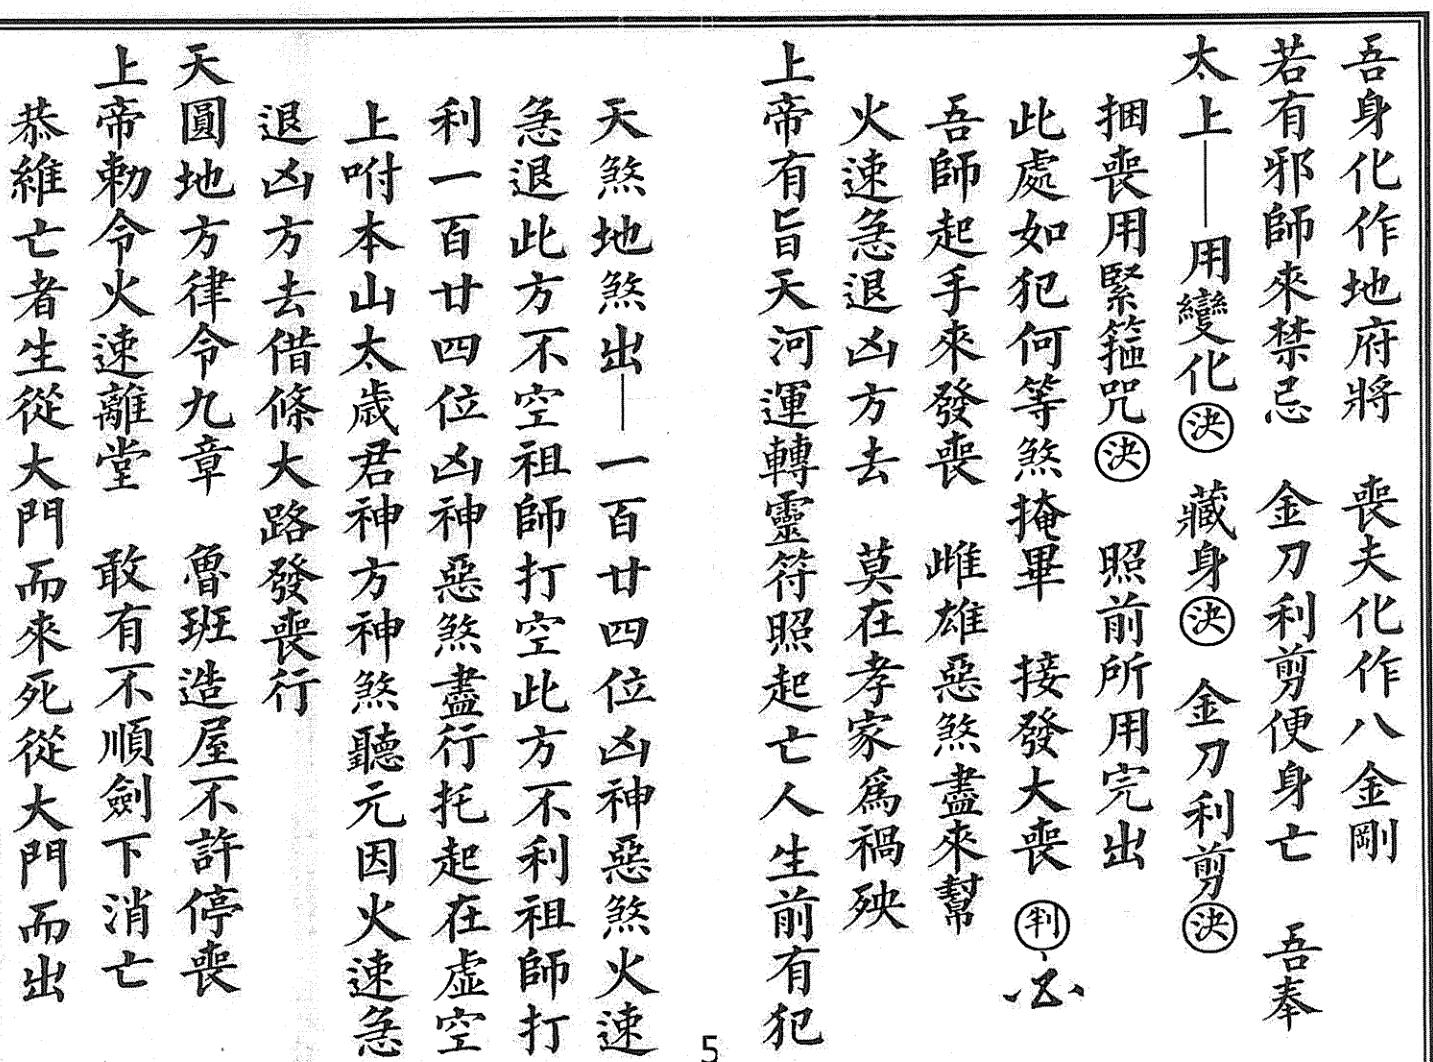 吾身化作地府將　喪夫化作八金剛
若有邪師來禁忌　金刀利剪便身亡　吾奉
太上——用變化決　藏身決　金刀利剪決
捆喪用緊箍咒決　照前所用完出
此處如犯何等煞掩畢　接發大喪　判
吾師起手來發喪　雌雄惡煞盡來幫
火速急退凶方去　莫在孝家爲禍殃
上帝有旨天河運轉靈符照起亡人生前有犯
天煞地煞出——一百廿四位凶神惡煞火速
急退此方不空祖師打空此方不利祖師打
利一百廿四位凶神惡煞盡行托起在虛空
上咐本山太歲君神方神煞聽元因火速急
退凶方去借條大路發喪行
天圓地方律令九章　魯班造屋不許停喪
上帝勅令火速離堂　敢有不順劍下消亡
恭維亡者生從大門而來死從大門而出
5